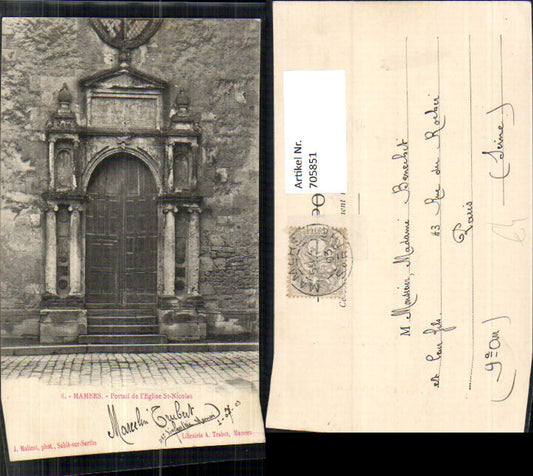 6. - MAMERS. - Portail de l'Eglise St-Nicolas
Marcelin Trubert
J. Malicot, phot., Sablé-sur-Sarthe
Librairie A. Trabet, Mamers
Artikel Nr.
705851
MAMERS
M Monsieur, Madame
et leur fils
63 Rue du Rocher
Paris
(Seine)